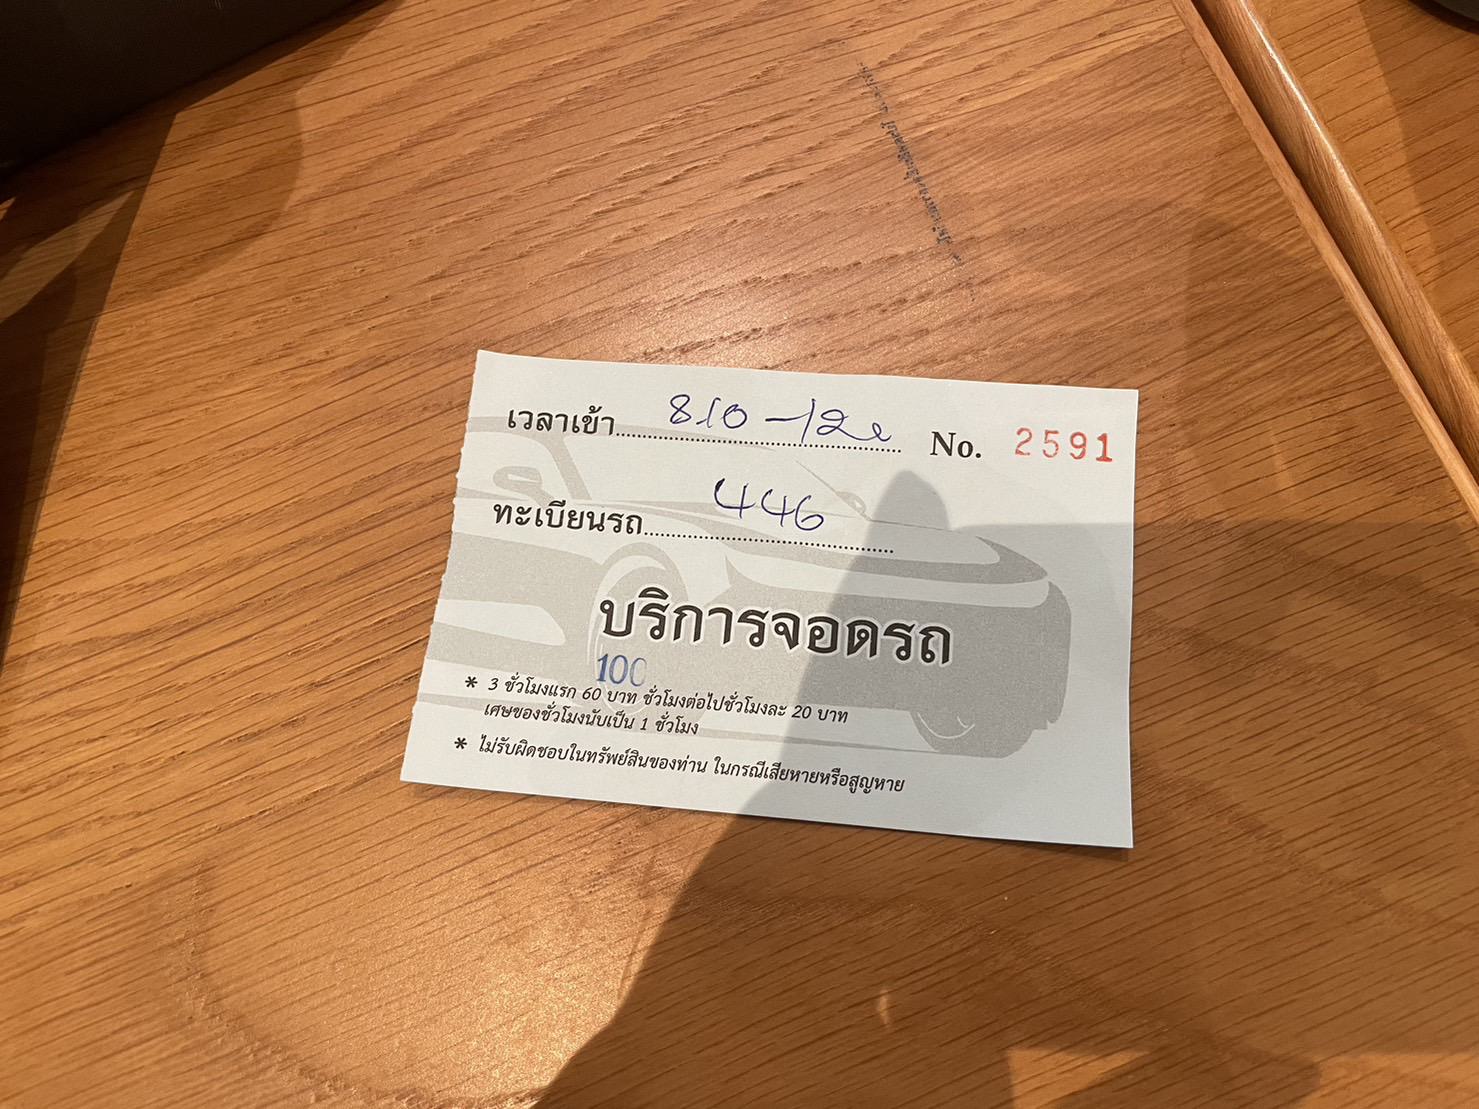 เวลาเข้า 810 - 12 No. 2591
ทะเบียนรถ 446
บริการจอดรถ
100
* 3 ชั่วโมงแรก 60 บาท ชั่วโมงต่อไปชั่วโมงละ 20 บาท
เศษของชั่วโมงนับเป็น 1 ชั่วโมง
* ไม่รับผิดชอบในทรัพย์สินของท่าน ในกรณีเสียหายหรือสูญหาย